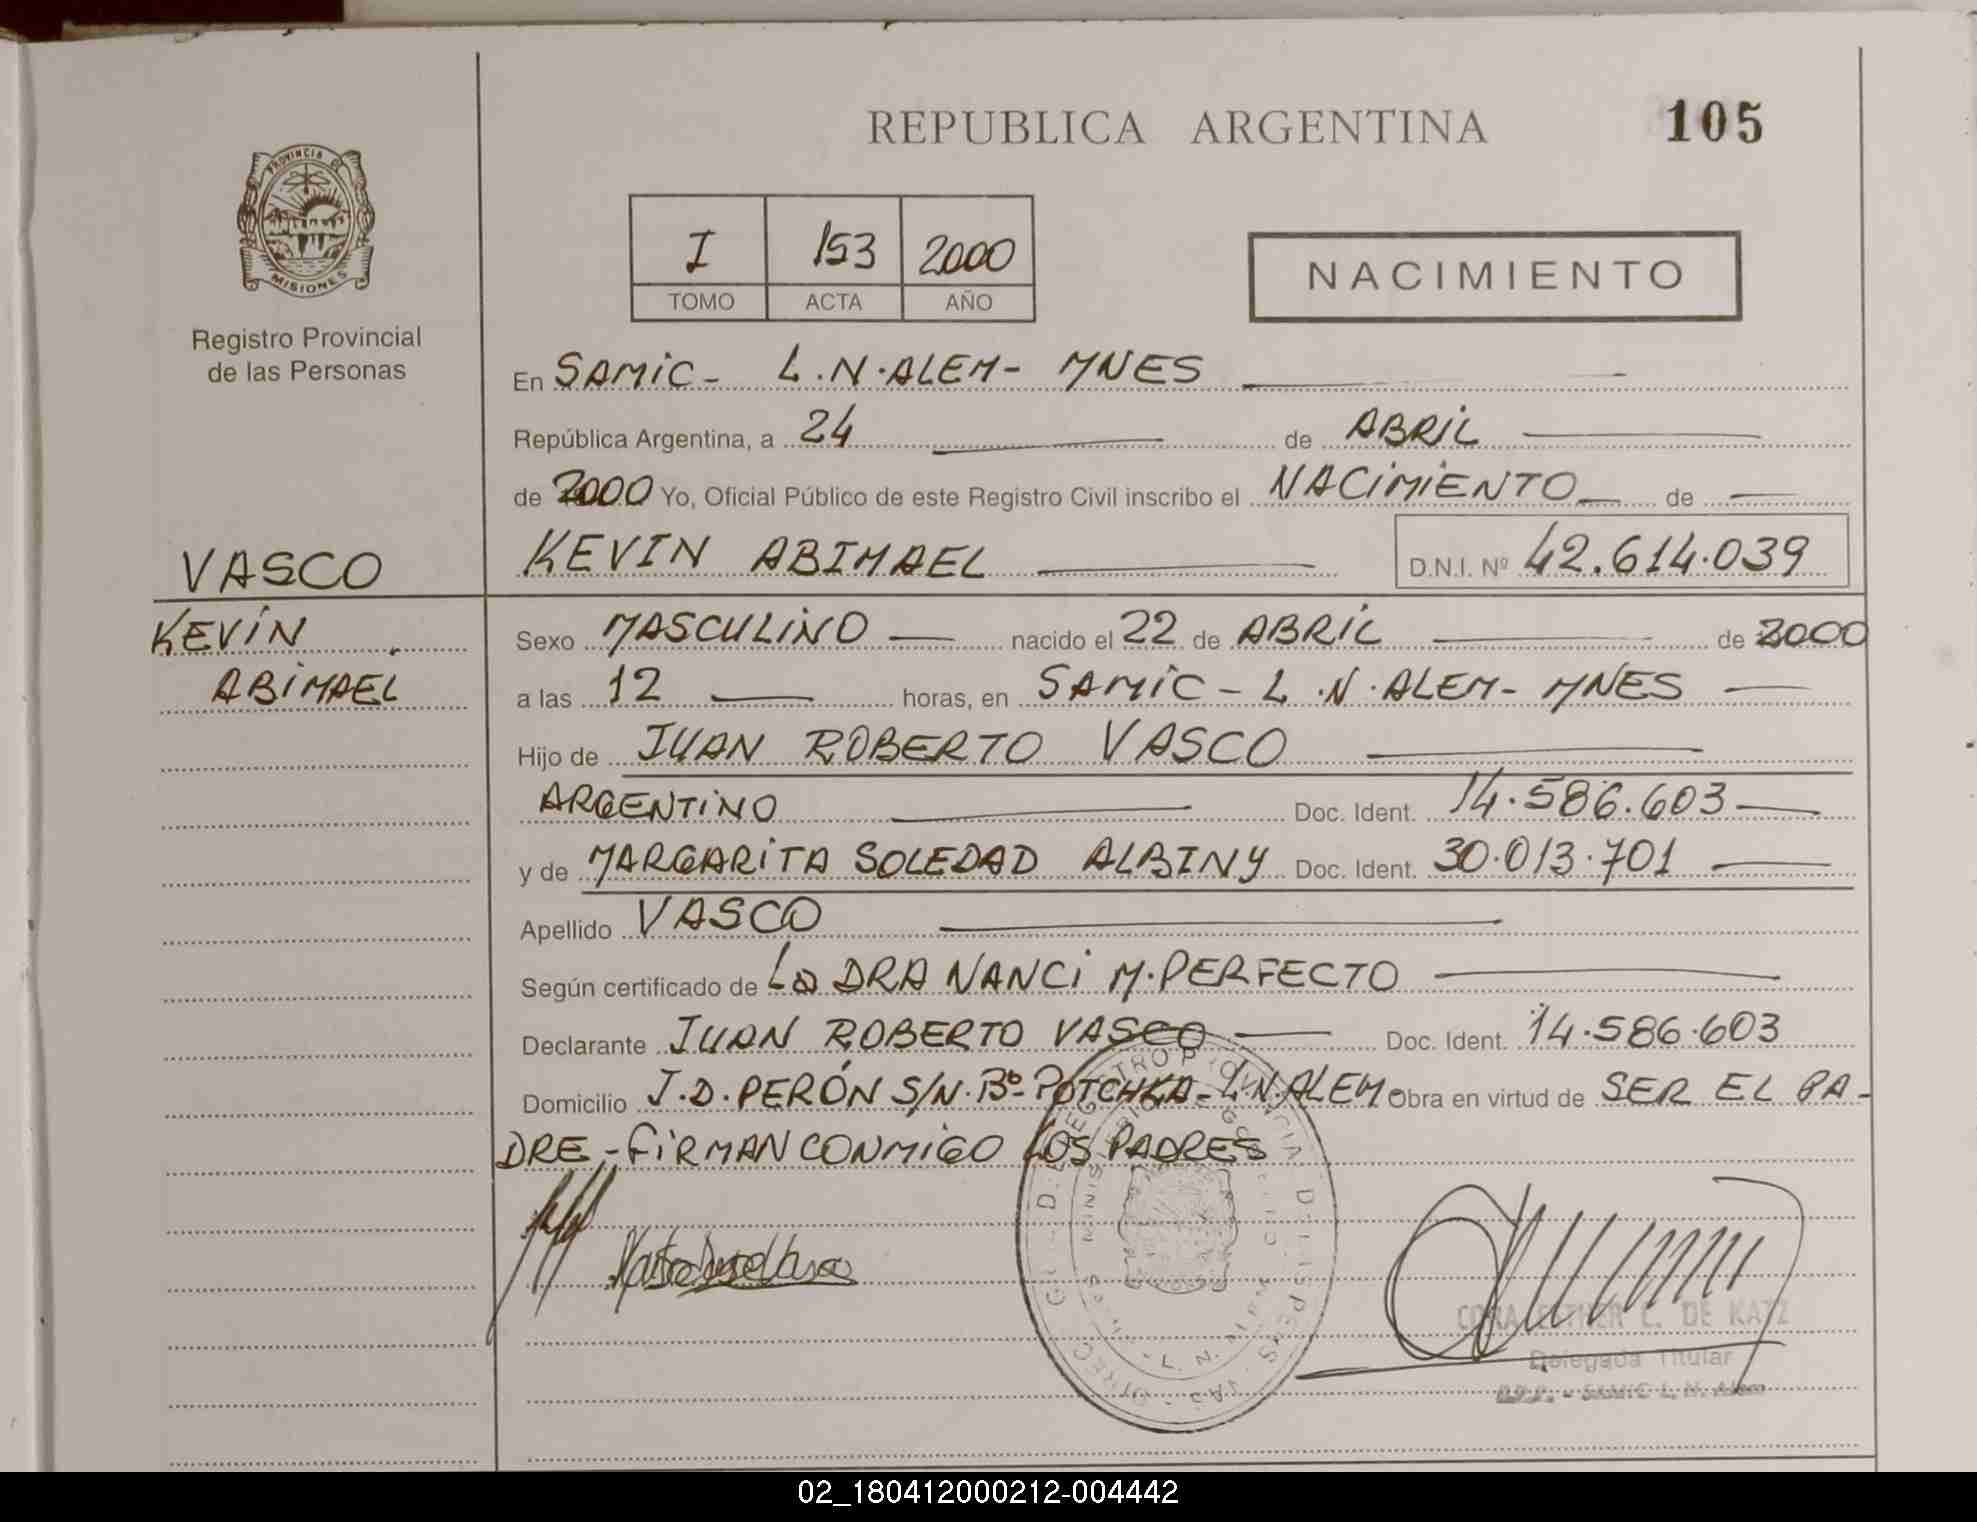 REPUBLICA ARGENTINA 105
PROVINCIA DE
MISIONES
Registro Provincial
de las Personas
I 153 2000
TOMO ACTA AÑO
NACIMIENTO
En SAMIC - L.N.ALEM - MNES
República Argentina, a 24 de ABRIL
de 2000 Yo, Oficial Público de este Registro Civil inscribo el NACIMIENTO de
VASCO KEVIN ABIMAEL D.N.I. Nº 42.614.039
KEVIN Sexo MASCULINO nacido el 22 de ABRIL de 2000
ABIMAEL a las 12 horas, en SAMIC - L.N.ALEM - MNES
Hijo de JUAN ROBERTO VASCO
ARGENTINO Doc. Ident. 14.586.603
y de MARGARITA SOLEDAD ALBINY Doc. Ident. 30.013.701
Apellido VASCO
Según certificado de La DRA NANCI M. PERFECTO
Declarante JUAN ROBERTO VASCO Doc. Ident. 14.586.603
Domicilio J.D. PERÓN S/N. Bº POTCHKA - L.N.ALEM Obra en virtud de SER EL PA-
DRE - FIRMAN CONMIGO LOS PADRES
CORA ESTHER L. DE KATZ
Delegada Titular
SAMIC L. N. Alem
02_180412000212-004442